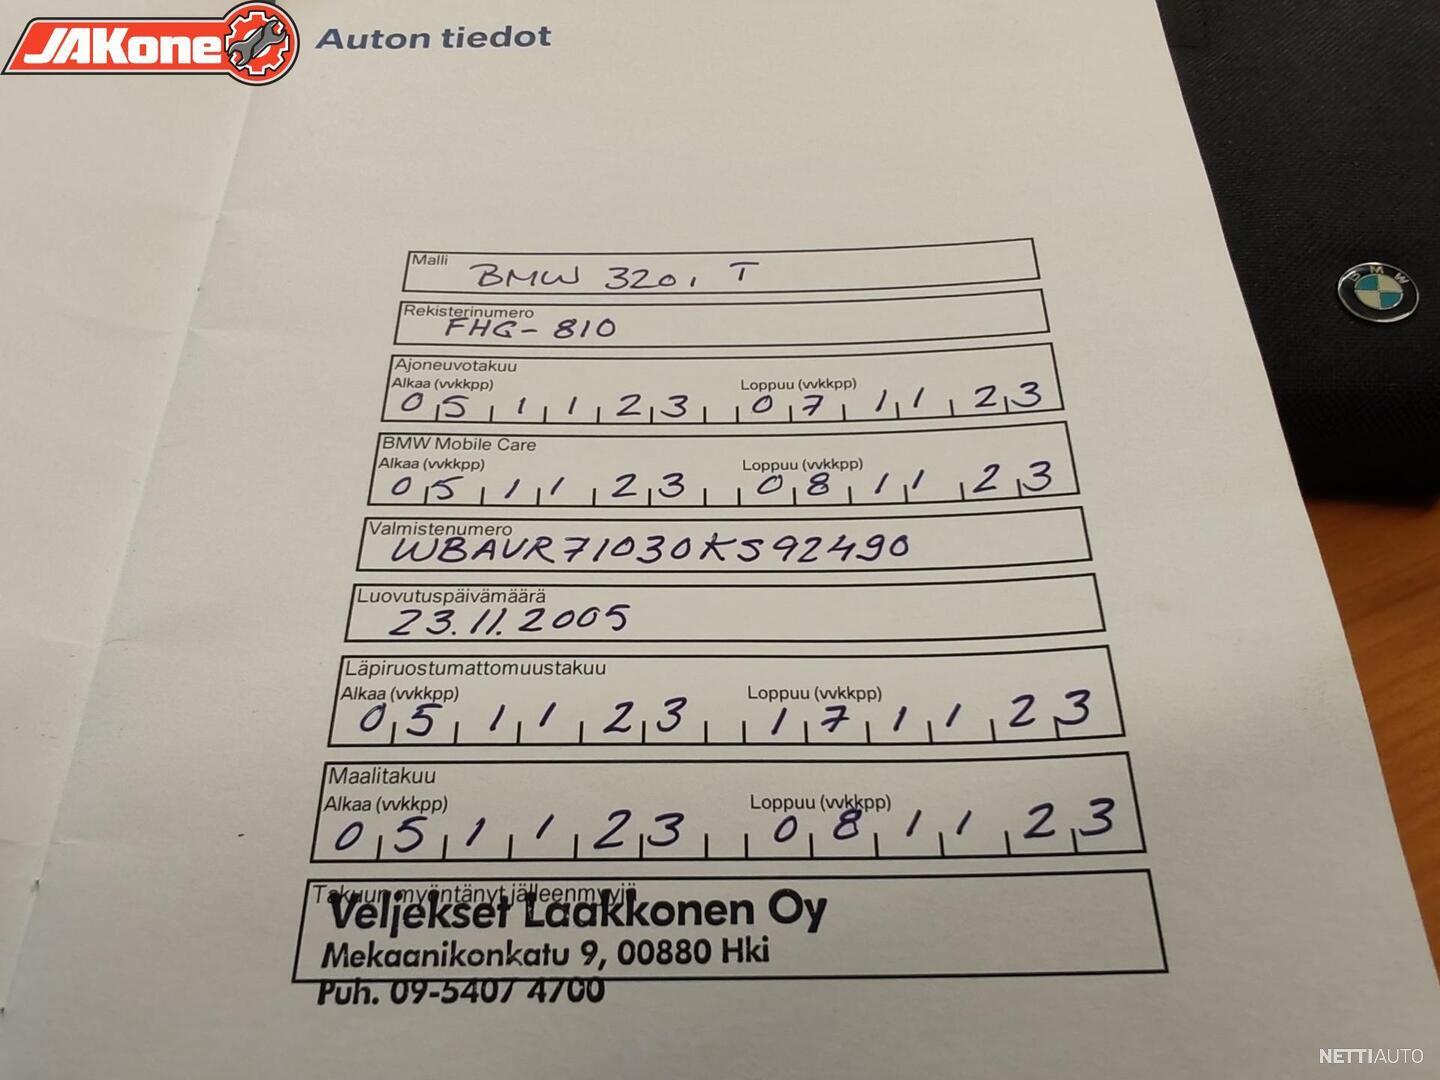 JAKone
Auton tiedot
Malli
BMW 320i T
Rekisterinumero
FHG-810
Ajoneuvotakuu
Alkaa (vvkkpp) Loppuu (vvkkpp)
0 5 1 1 2 3 0 7 1 1 2 3
BMW Mobile Care
Alkaa (vvkkpp) Loppuu (vvkkpp)
0 5 1 1 2 3 0 8 1 1 2 3
Valmistenumero
WBAVR71030KS92490
Luovutuspäivämäärä
23.11.2005
Läpiruostumattomuustakuu
Alkaa (vvkkpp) Loppuu (vvkkpp)
0 5 1 1 2 3 1 7 1 1 2 3
Maalitakuu
Alkaa (vvkkpp) Loppuu (vvkkpp)
0 5 1 1 2 3 0 8 1 1 2 3
Takuun myöntänyt jälleenmyyjä
Veljekset Laakkonen Oy
Mekaanikonkatu 9, 00880 Hki
Puh. 09-5407 4700
BMW
NETTIAUTO